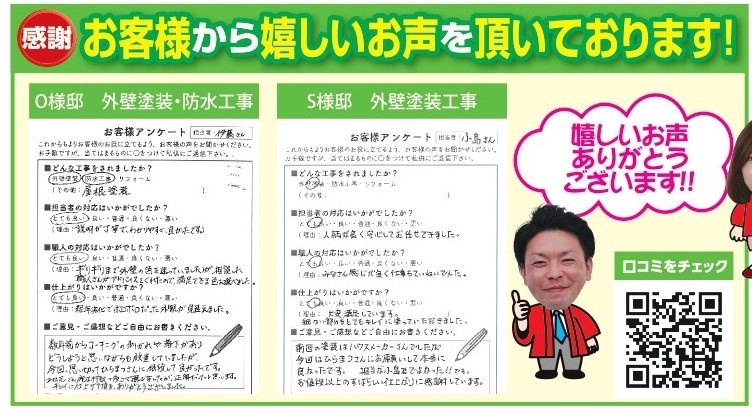 感謝 お客様から嬉しいお声を頂いております!
O様邸 外壁塗装・防水工事
お客様アンケート 担当者 伊藤さん
これからもよりお客様のお役に立てるよう、お客様の声をお聞かせください。
お手数ですが、当てはまるものに○をつけて私供にご返信下さい。
■どんな工事をされましたか?
外壁塗装・防水工事・リフォーム
(その他: 屋根塗装
■担当者の対応はいかがでしたか?
とても良い・良い・普通・良くない・悪い
(理由: 説明が丁寧でわかりやすく、良かったです。
■職人の対応はいかがでしたか?
とても良い・良い・普通・良くない・悪い
(理由: ギリギリまで外壁の色を迷っていましたが、相談した
職人さんがアドバイスをくれたので、満足できる色を選べました。
■仕上がりはいかがですか?
とても良い・良い・普通・良くない・悪い
■ご意見・ご感想などご自由にお書きください。
数年前からコーキングの
どうしようと思いながらも放置していましたが、
今回、思い切ってひらまつさんに依頼して良かったです。
S様邸 外壁塗装工事
お客様アンケート 担当者 小島さん
これからもよりお客様のお役に立てるよう、お客様の声をお聞かせください。
お手数ですが、当てはまるものに○をつけて私供にご返信下さい。
■どんな工事をされましたか?
外壁塗装・防水工事・リフォーム
(その他:
■担当者の対応はいかがでしたか?
とても良い・良い・普通・良くない・悪い
(理由: 人柄が良く安心してお任せできました。
■職人の対応はいかがでしたか?
とても良い・良い・普通・良くない・悪い
(理由: みなさん感じが良く仕事もていねいでした。
■仕上がりはいかがですか?
とても良い・良い・普通・良くない・悪い
(理由: 大変満足しています。
細かい部分もとてもキレイに塗っていただきました。
■ご意見・ご感想などご自由にお書きください。
前回の塗装はハウスメーカーさんでしたが
今回はひらまつさんにお願いして本当に
良かったです。 担当が小島さんでよかった!!です。
お値段以上のすばらしい仕上がりに感謝しています。
嬉しいお声
ありがとう
ございます!!
口コミをチェック